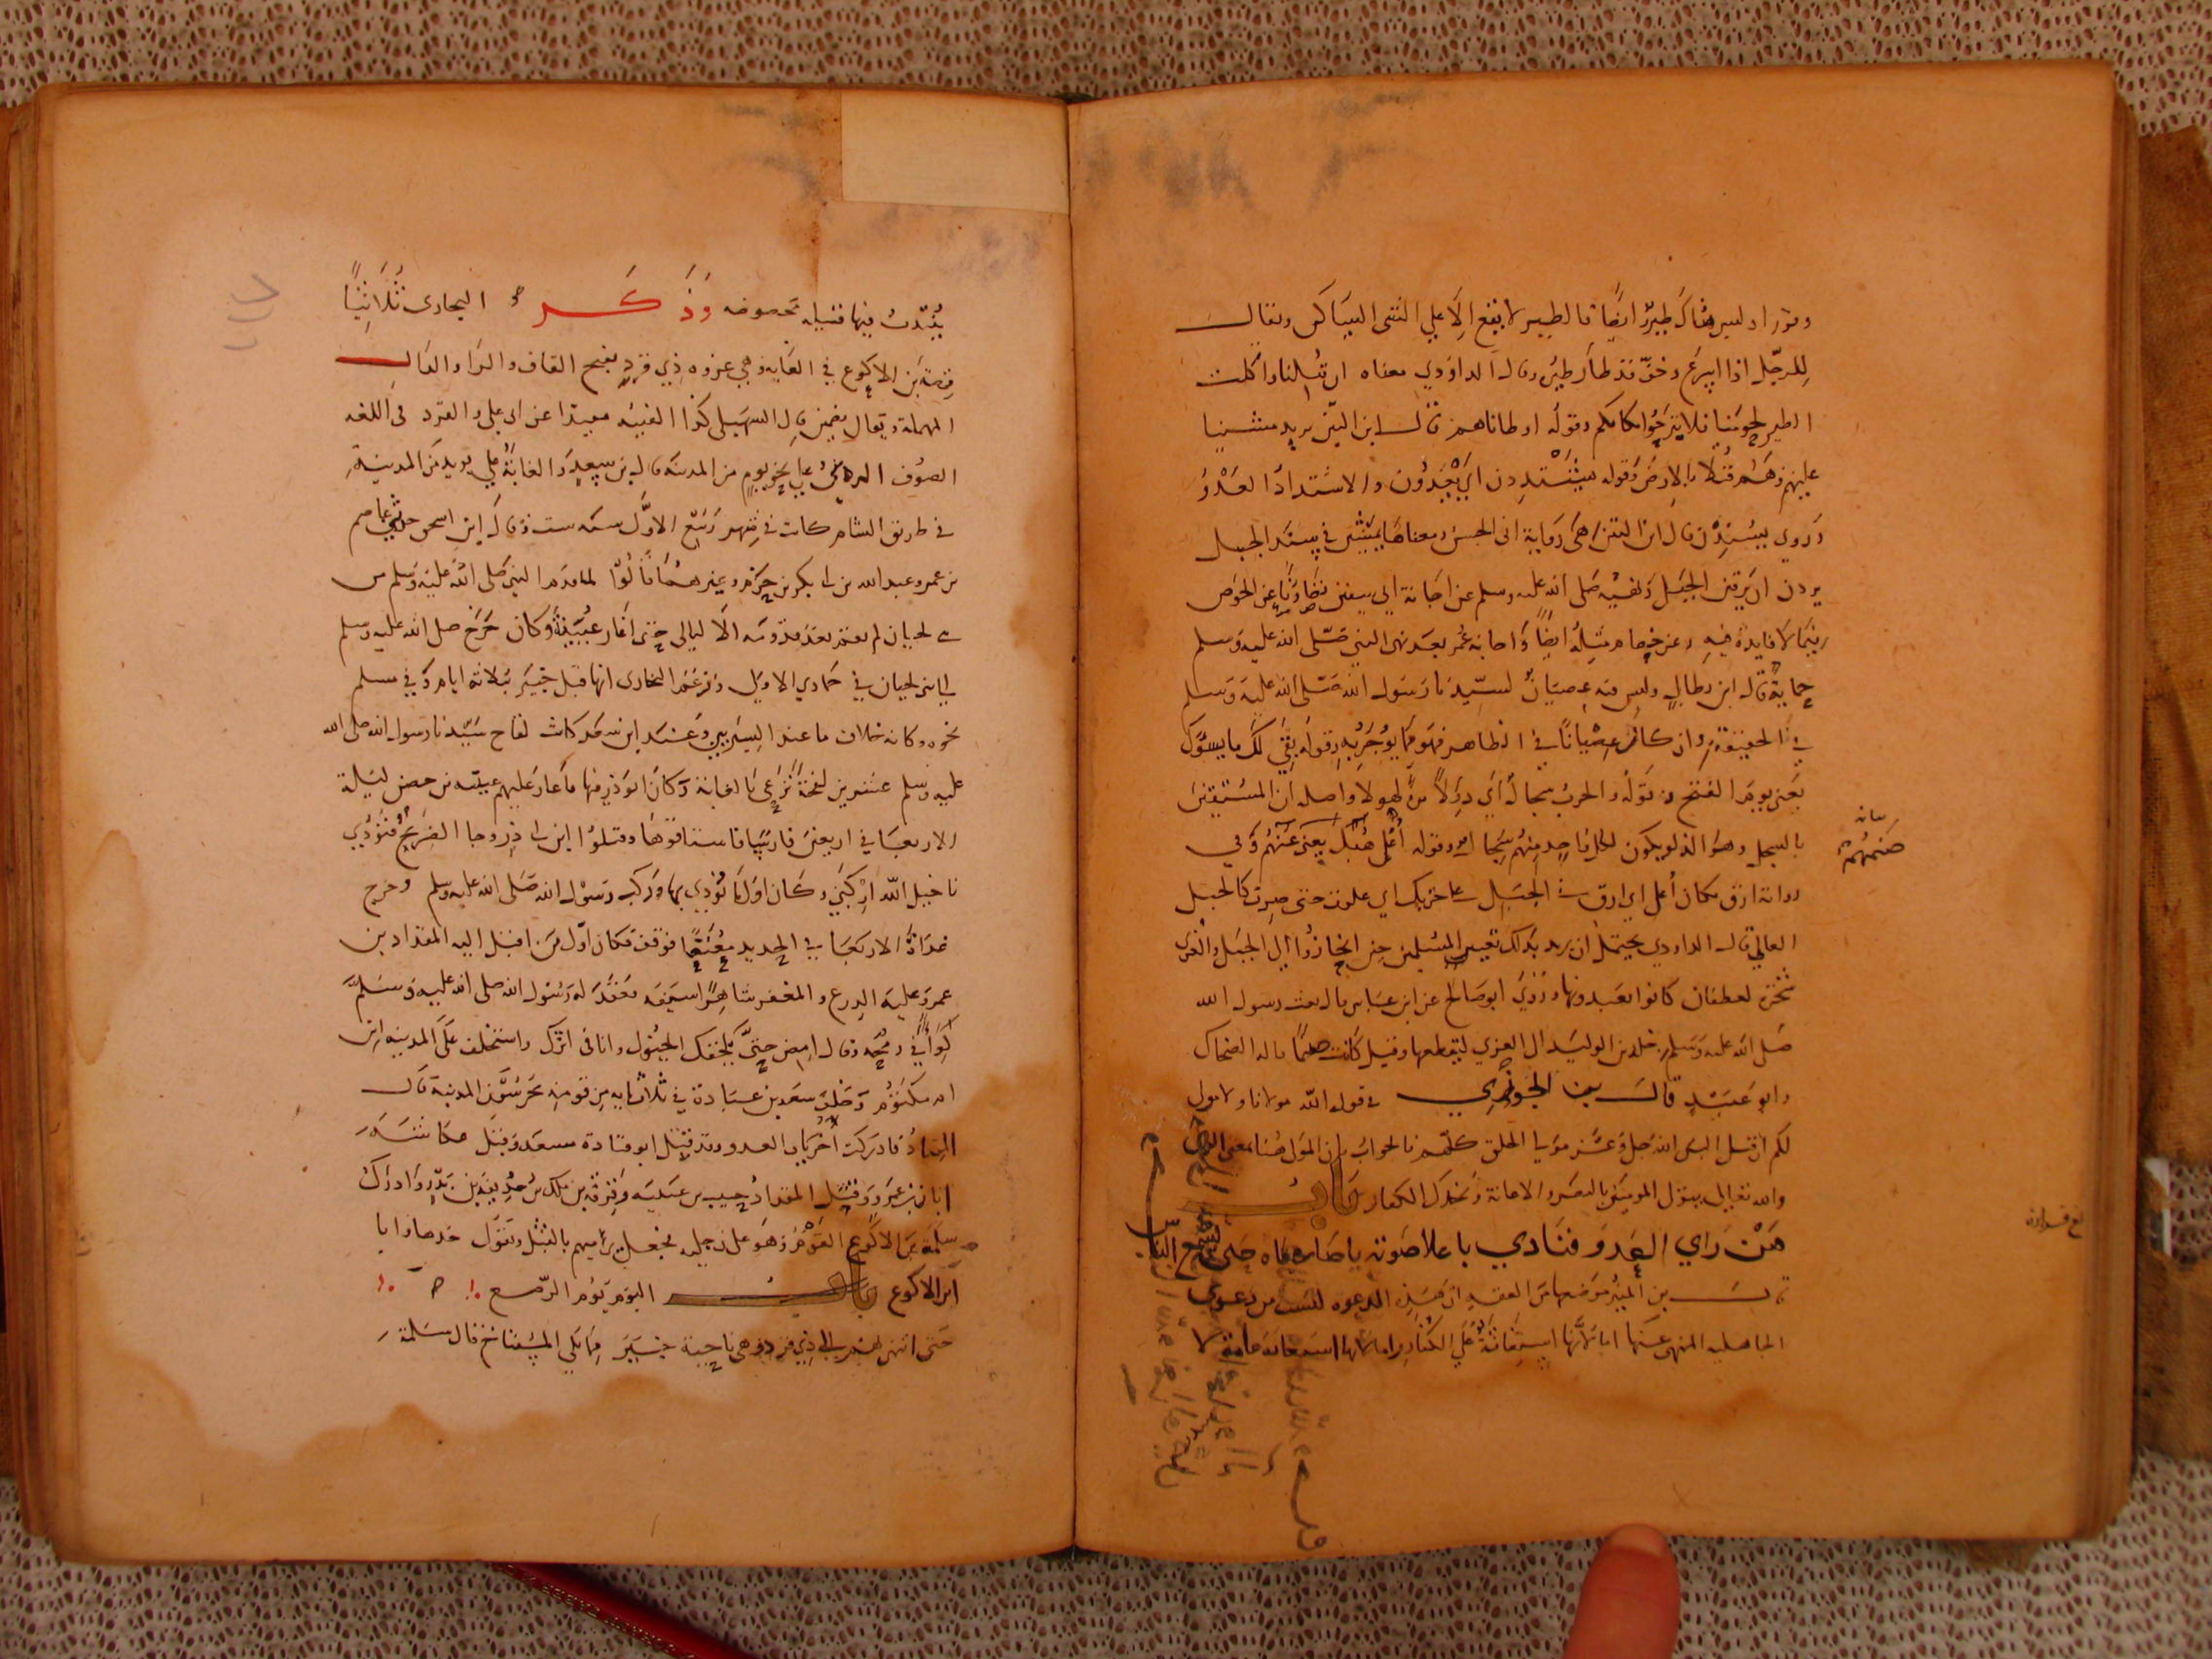 وتوراد ليس هناك طير ايضا فالطير لا يقع الا علي الشي الساكن ويقال
للرجل اذا اسرع وخف قد طار طيره وقال الداودي معناه ان قتلنا واكلت
الطير لحومنا فلا تبرحوا مكانكم وقوله اوطاناهم قال ابن التين يريد مشينا
عليهم وهم قتلا بالارض وقوله يشتددن اي يعدون والاشتداد العدو
وروي يسندن قال ابن التين هي رواية ابي الحسن ومعناها يمشين في سند الجبل
يردن ان يرقين الجبل ونهيه صلى الله عليه وسلم عن اجابة ابي سفين عن الخوض
فيما لا فايدة فيه وعن خصام مثله ايضا واجابه عمر بعد نهي النبي صلى الله عليه وسلم
حماية قال ابن بطال وليس فيه عصيان لسيدنا رسول الله صلى الله عليه وسلم
في الحقيقة وان كان عصيانا في الظاهر فهو مما يوجر به وقوله بقي لك ما يسؤك
يعني يوم الفتح وقوله والحرب سجال اي دولا مرة لهولا واصله ان المستقين
بالسجل وهو الدلو يكون لكل واحد منهم سجال وقوله اعل هبل يعني صنمهم وفي
رواية ارق مكان اعل اي ارق في الجبل علي حزبك اي علوت حتى صرت كالجبل
العالي قال الداودي يحتمل ان يريد بذلك تعيير المسلمين حين انحازوا الي الجبل والعزي
شجرة لغطفان كانوا يعبدونها وروي ابو صالح عن ابن عباس قال بعث رسول الله
صلى الله عليه وسلم خلد بن الوليد الي العزي ليقطعها وقيل كانت صنما قاله الضحاك
وابو عبيد قال بن الجوزي في قوله الله مولانا ولا مولى
لكم ان قيل اليس الله جل وعز مولي الخلق كلهم فالجواب ان المولى هنا بمعنى الولي
والله تعالي يتولى المومنين بالنصر والاعانة ويخذل الكفار باب
من راي العدو فنادي باعلا صوته يا صاحباه حتى يسمع الناس
قال بن المنير موضعها من الفقه ان هذه الدعوه ليست من دعوي
الجاهليه المنهي عنها اما لانها استغاثة علي الكفار واما لانها استغاثة عامة لا
يثبت فيها قبيله مخصوصه وذكر البخاري ثلاثيا
قصة بن الاكوع في الغابه وهي غزوه ذي قرد بفتح القاف والرا والدال
المهملة ويقال بضمتين قال السهيلي كذا الفيته مقيدا عن ابي علي والقرد في اللغه
الصوف الردي علي نحو يوم من المدينه قال بن سعد والغابة علي بريد من المدينة
في طريق الشام كانت في شهر ربيع الاول سنه ست وقال ابن اسحق حدثني عاصم
بن عمر وعبدالله بن ابي بكر بن حزم وغيرهما قالوا لما قدم النبي صلى الله عليه وسلم من
بني لحيان لم يقم بعد قدومه الا ليالي حتى اغار عيينة وكان خرج صلى الله عليه وسلم
الي بني لحيان في جمادي الاولي وزعم البخاري انها قبل خيبر بثلاثة ايام وفي مسلم
نحوه وكانه خلاف ما عند السيريين وعند ابن سعد كانت لقاح سيدنا رسول الله صلى الله
عليه وسلم عشرين لقحة ترعي بالغابة وكان ابو ذر فيها فاغار عليهم عيينه بن حصن ليلة
الاربعا في اربعين فارسا فاستاقوها وقتلوا ابن ابي ذر وجا الصريخ فنودي
يا خيل الله اركبي وكان اول ما نودي بها وركب رسول الله صلى الله عليه وسلم وخرج
غداة الاربعا في الحديد مقنعا فوقف فكان اول من اقبل اليه المقداد بن
عمرو وعليه الدرع والمغفر شاهرا سيفه فعقد له رسول الله صلى الله عليه وسلم
لواء في رمحه وقال امض حتى تلحقك الخيول وانا في اثرك واستخلف على المدينه ابن
ام مكتوم وخلف سعد بن عبادة في ثلاثمايه من قومه يحرسون المدينة قال
المقداد فادركت اخريات العدو وقد قتل ابو قتادة مسعدة وقتل عكاشة
ابان بن عمرو وقتل المقداد حبيب بن عيينه وقرفه بن ملك بن حذيفة بن بدر وادرك
سلمة بن الاكوع القوم وهو على رجليه فجعل يراميهم بالنبل ويقول خذها وانا
ابن الاكوع اليوم يوم الرضع
حتى انتهي بهم الي ذي قرد وهي ناحية خيبر مما يلي المستناخ قال سلمة